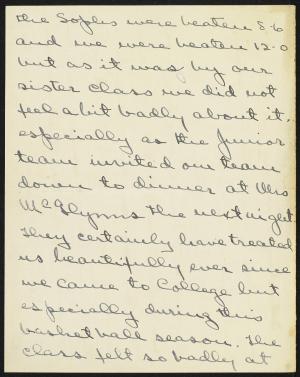 the Sophs were beaten 8-6
and we were beaten 12-0
but as it was by our
sister class we did not
feel a bit badly about it,
especially as the Junior
team invited our team
down to dinner at Mrs
McGlynns the next night.
They certainly have treated
us beautifully ever since
we came to College but
especially during this
basket ball season. The
class felt so badly at